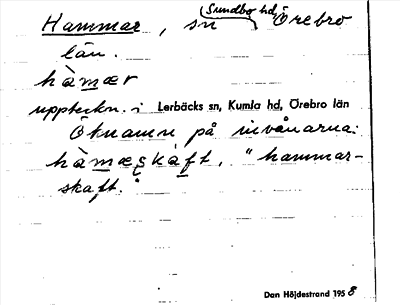 Hammar, sn (Sundbo hd, Örebro
län.
hàmær
uppteckn. i Lerbäcks sn, Kumla hd, Örebro län
Öknamn på invånarna:
hàmæskaft, "hammar-
skaft."
Dan Höjdestrand 1958